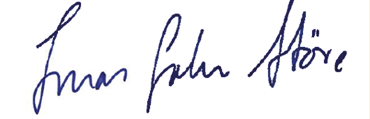 Jonas Gahr Støre